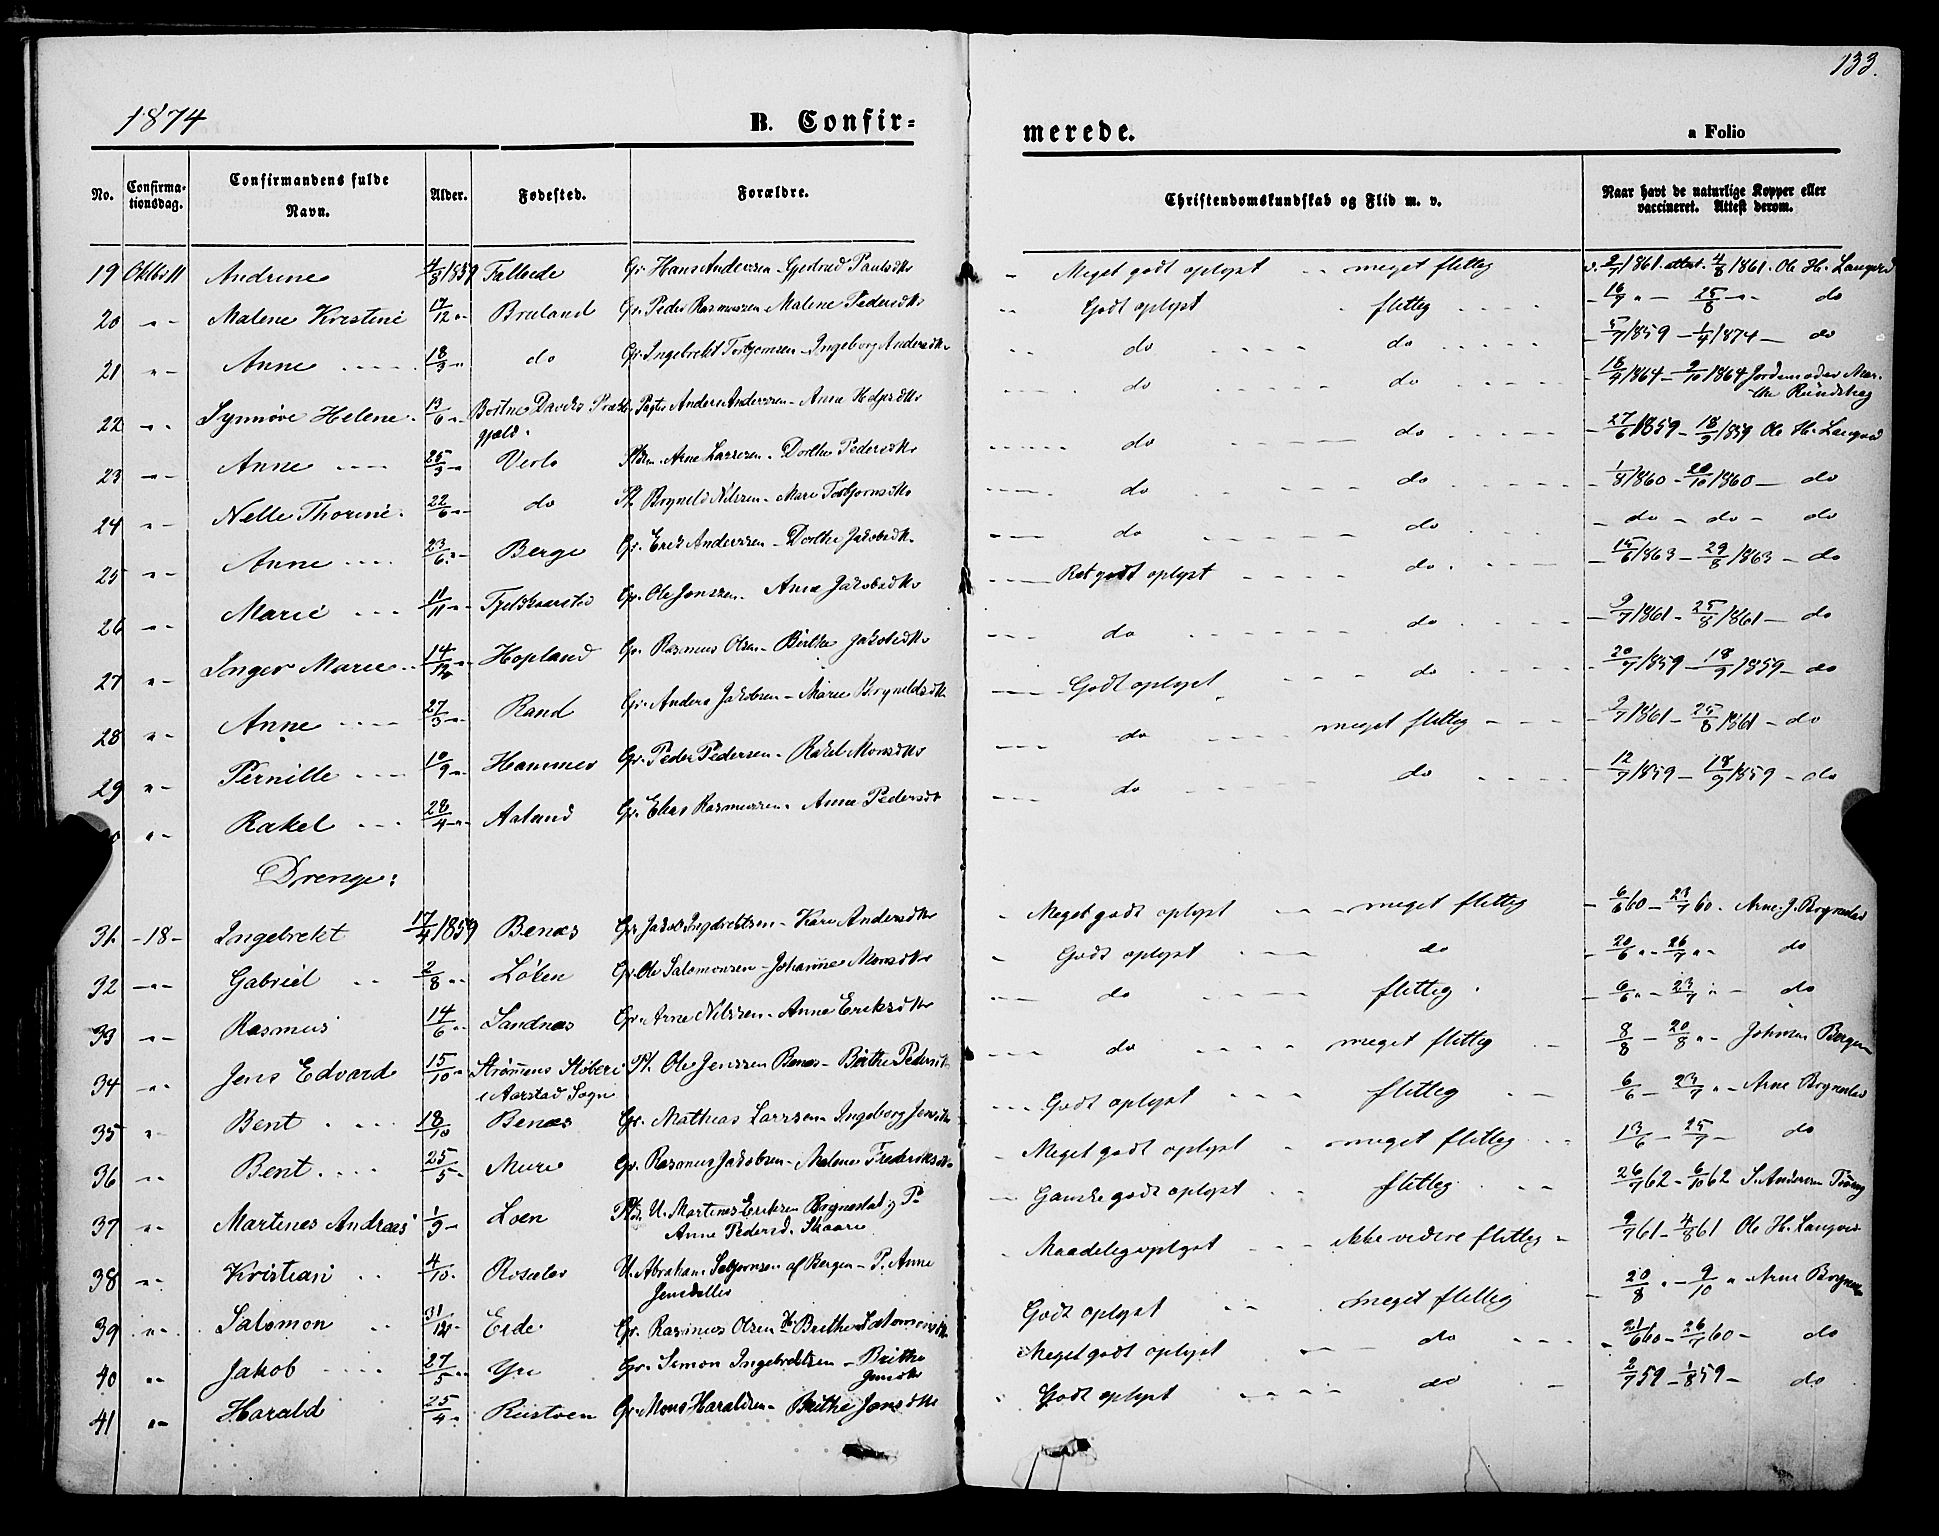 133.
1874 B. Confir= merede. a Folio
No. Confirma-tionsdag. Confirmandens fulde Navn. Alder. Fødested. Forældre. Christendomskundskab og Flid m. v. Naar havt de naturlige Kopper eller vaccineret. Attest derom.
19 Oktbr 11 Andrine 4/8 1859 Gr. Hans Anderssen - Gjertrud Paulsdtr - Meget godt oplyst - - meget flittig v. 2/7 1861. attest. 4/8 1861. Ole H. Langved
20 " - Malene Kristine 17/12 " - Bruland Gr. Peder Rasmussen Malene Pedersdtr " Godt oplyst - flittig - - - - 16/7 " - 25/8 " - do
21 " - Anne - - - - 18/3 " - do Gr. Ingebrekt Torbjornsen - Ingeborg Andersdtr - - do - - - - do - - - - - 5/7 1859 - 1/4 1874 - do
22 " - Synnøve Helene. 13/6 " - Bostne Daviks Præste gjeld. Anders Anderssen - Anne Holgersdtr - - - do - - - - do - - - - 18/9 1864 - 9/10 1864 Jordemoder Mar-the Rundhag
23 - " - Anne - - - 25/3 " - Verlo Arne Larssen - Dorthe Pedersdtr - - - do - - - - do - - - - 27/6 1859 - 18/9 1859 Ole H. Langved
24 " - Nelle Thorine. 22/6 " - do Pl. Brynild Nilssen - Mari Torbjornsdtr - - - do - - - - do - - - - 1/8 1860 - 20/10 1860 - do
25 " - Anne - - - 23/6 " - Berge Gr. Erik Anderssen - Dorthe Jakobsdtr. - - - do - - - - do - - - - do - do - do
26 " - Marie - - - 11/11 " - Gr. Ole Jonssen - Anne Jakobsdtr - - - Ret godt oplyst - - - - do - - - - 15/6 1863 - 29/8 1863 - do
27 " - Inger Marie - - 14/12 " - Hopland Gr. Rasmus Olsen - Birthe Jakobsdtr - - - do - - - - do - - - - 9/7 1861 - 25/8 1861 - do
28 " - Anne - - - - 27/3 " - Rand Gr. Anders Jakobsen - Marie Brynildsdtr - - - Godt oplyst - do - - - - 20/7 1859 - 18/9 1859 - do
29 " - Pernille - - - 10/9 " - Hammer Gr. Peder Pedersen - Rakel Monsdtr - - - do - - - - meget flittig - - - - 9/7 1861 - 25/8 1861 - do
" - Rakel - - - 28/4 " - Aaland Gr. Elias Rasmussen - Anne Pedersdtr - - - do - - - - do - - - - 12/7 1859 - 18/9 1859 - do
Drenge:
31. - 18 - Ingebrekt 17/4 1859 Benæs Gr. Jakob Ingebrektsen - Kari Andersdtr - Meget godt oplyst - - meget flittig - 6/6 60 - 23/7 60. Arne J. Brynestad
32 - " - Gabriel - - 2/8 " - Løken Gr. Ole Salomonsen - Johanne Monsdtr - Godt oplyst - - - do - 20/6 " - 26/7 " - do
33 - " - Rasmus 14/6 " - Sandnæs Gr. Arne Nilssen - Anne Eriksdtr - - do - - - - flittig - 6/6 " - 23/7 " - do
34 - " - Jens Edvard 15/10 " - Strømmens Støberi i Aarstad Sogn Pl. Ole Jenssen Benæs - Birthe Pedersdtr - - - do - - - - meget flittig - - 8/8 - 20/8 " - Bergen
35 " - Bent - - - 18/10 Benæs Gr. Mathias Larssen Ingeborg Jensdtr - - - Godt oplyst - - - flittig - - 6/6 - 23/7 " - Arne Brynestad
36 " - Bent. - - - 25/5 - Muri Gr. Rasmus Jakobsen - Malene Frederiksdtr - Meget godt oplyst - meget flittig - - 13/6 - 25/7 - do
37 " - Martines Andreas 1/9 - Loen U. Martines Eriksen Brynestad og P. Anne Pedersd. Skaare - Ganske godt oplyst - - flittig - - 26/7 62 - 6/10 62 S. Andersen
38 " - Kristian - - 4/10 - U. Abraham af Bergen - P. Anne Jensdatter - Maadelig oplyst - - - ikke videre flittig - 9/7 61 - 4/8 61 Ole H. Langved
39 - " - Salomon - - 31/12 - Eide Gr. Rasmus Olsen H. Birthe Salomonsdtr Godt oplyst - - meget flittig - 20/8 " - 9/10 " Arne Brynestad
40 " - Jakob - - - 27/5 " - Yri Gr. Simon Ingebrektsen - Birthe Jensdtr Meget godt oplyst - - - do - - - 21/6 60 - 26/7 60 - do
41 " - Harald 25/4 " - Rustøen Gr. Mons Haraldsen - Birthe Jonsdtr - Godt oplyst - - - - do - 2/7 59 - 1/8 59 - do